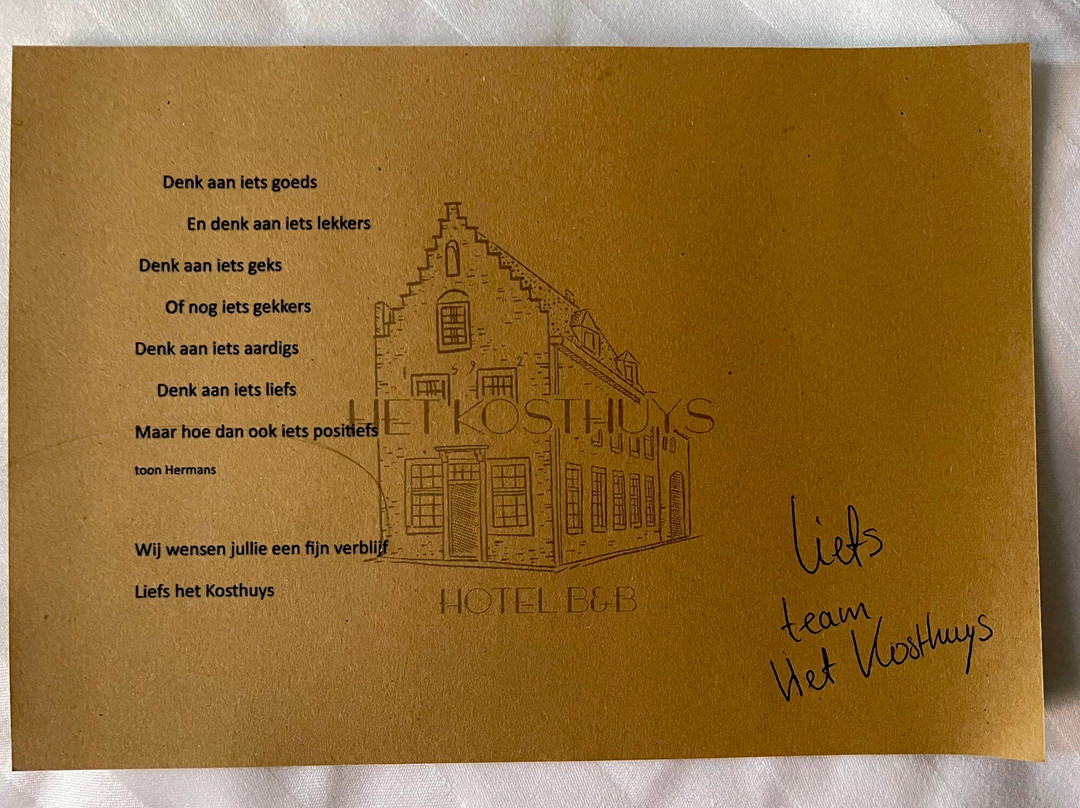 Denk aan iets goeds
En denk aan iets lekkers
Denk aan iets geks
Of nog iets gekkers
Denk aan iets aardigs
Denk aan iets liefs
Maar hoe dan ook iets positiefs
toon Hermans
Wij wensen jullie een fijn verblijf
Liefs het Kosthuys
1 5 9 2
HET KOSTHUYS
HOTEL B&B
Liefs
team
Het Kosthuys